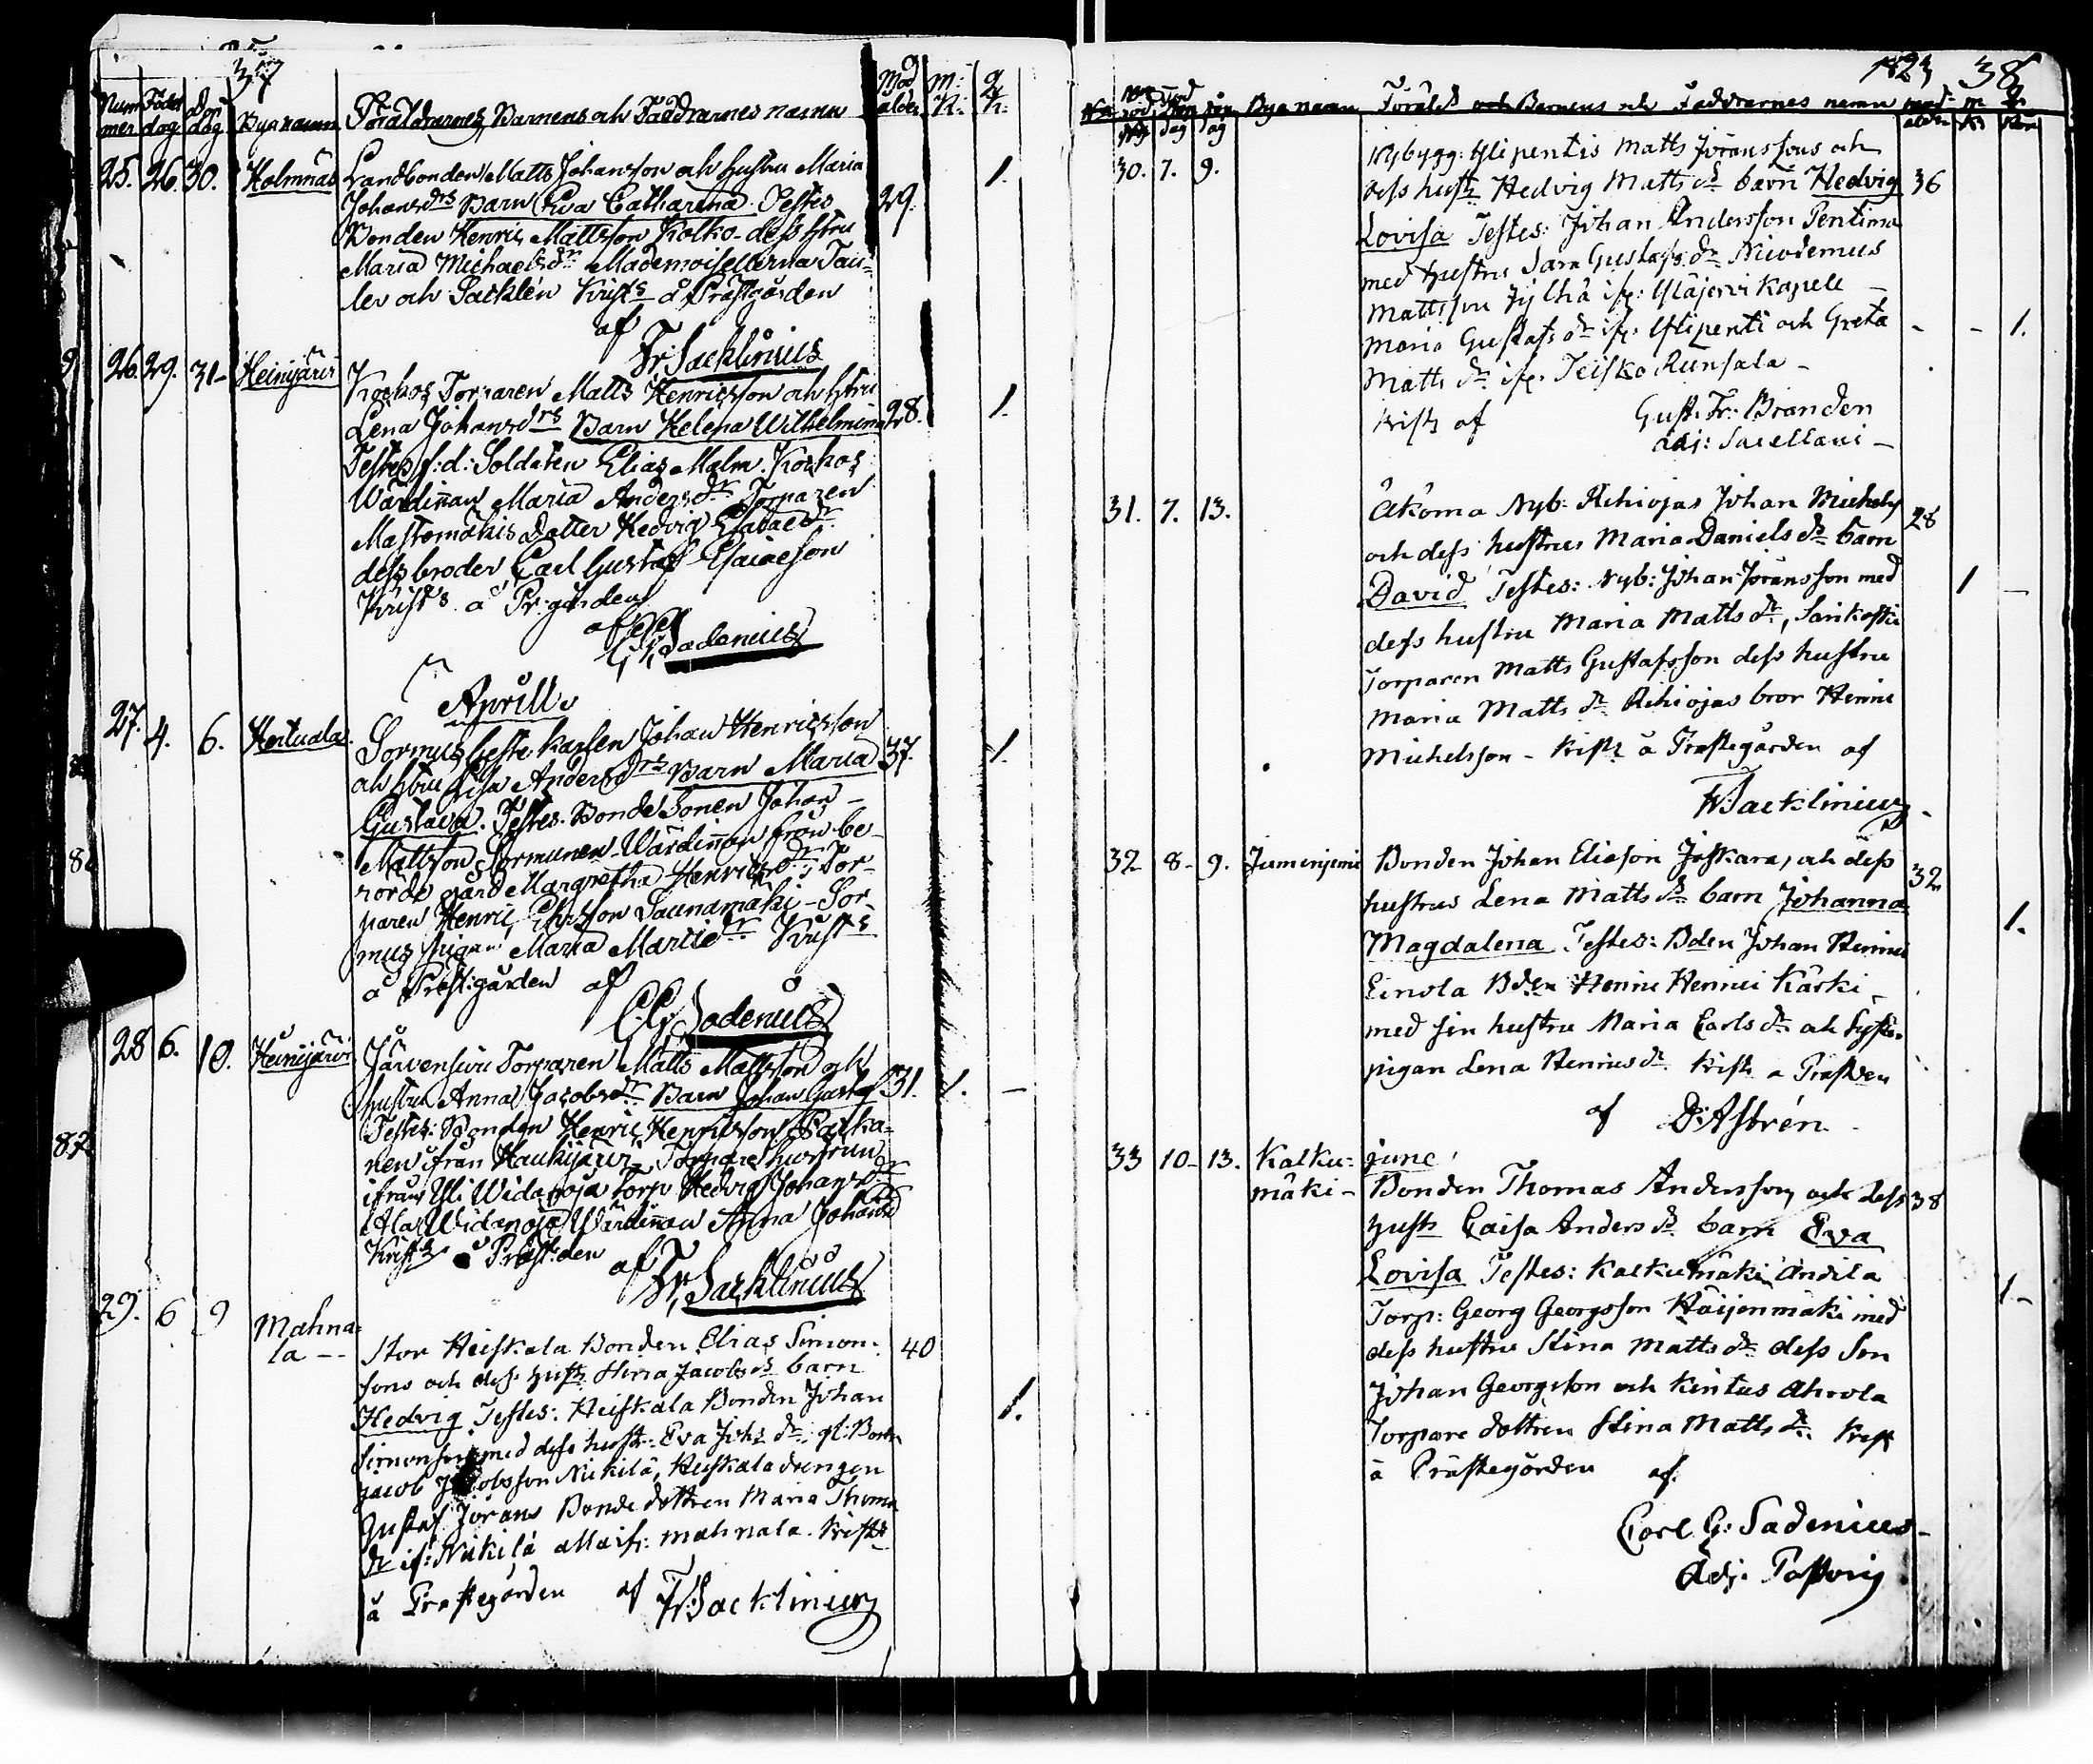 37
Num Föd Dog Byanamn Föräldrarnes, Barnens och Faddrarnes namn Mod M: Q
mer dag dag ålder K: K:
25. 26. 30. Holmnäs Landbonden Matts Johansson och hustru Maria 1.
Johansdrs Barn Eva Catharina. Testes 29.
Bonden Henric Mattsson Kolko - dess hstru
Maria Michaelsdr Mademoisellerna Tau-
ler och Sacklén Krists å Prästgården
af
Fr: Sacklinius
26. 29. 31 - Heinijärvi Koskos Torparen Matts Henricsson och hstru
Lena Johansdrs Barn Helena Wilhelmina 28. 1.
Testes f:d: Soldaten Elias Malm. Koskos
Wärdinnan Maria Andersdr Torparen
Mastomäkis Dotter Hedvig
dess broder Carl Gustaf Esaiaeson
Krists å Pr:gården
af
C G Sadenius
Aprill
27. 4. 6. Hertuala Sormus Johan Henricsson
och hstru Lisa Andersdrs Barn Maria 37. 1.
Gustava. Testes. Bonde Sonen Johan -
Mattsson Sormunen - Wärdinnan från be-
rörde gård Margretha Henricsdr, Tor-
paren Henric Saunamäki - Sor-
mus Pigan Maria Krists
å Präst:gården af
C G Sadenius
28 6. 10. Heinijärvi Järvensivu Torparen Matts Mattsson och
hustru Anna Jacobsdr Barn Johan Gustaf 31. 1. -
Testes: Bonden Henric Henricsson Parka-
nen ifrån Haukijärvi, Torpare hustrun
ifrån Yli Widanoja torp Hedvig Johansdr
Ala Widanoja Wärdinnan Anna Johansd
Krists å Präst:den af
Fr: Sacklinius
29. 6 9 Mahna-
la - - Stor Heiskala Bonden Elias Simon- 40
sons och dess hust Stina Jacobs dr barn
Hedvig Testes: Heiskala Bonden Johan 1.
Simonson med dess hustr: Eva Johs dr: gl: Bonn
Jacob Jacobsson Nickilä, Heiskala drengen
Gustaf Jörans Bonde dottren Maria Thoma
dr if: Nickilä mahnala. Krists
å Prästegården af Fr: Sacklinius
1823 38
Byanamn Föräld och Barnens och Faddrarnes namn mod- m q
dag dag ålder
30. 7. 9. Nybygg: Ylipentis Matts Jöranssons och
dess hust Hedvig Matts dr barn Hedvig 36
Lovisa Testes: Johan Andersson Pentima
med hustru Sara Gustafs dr Nicodemus
Mattsson Jylhä ifr: Ylöjervi Kapell -
Maria Gustafs dr ifr: Ylipenti och Greta - - 1.
Matts dr ifr. Teisko Runsala -
Krist af Gust. Fr: Branden
adj: Sacellani -
31. 7. 13. Åkoma Nyb: Rihiojas Johan Michels 28
och dess hustrus Maria Daniels dr barn
David Testes: Nyb: Johan Jöransson med 1 -
dess hustru Maria Matts dr, Sarikoski
Torparen Matts Gustafsson dess hustru
Maria Matts dr Rihiojas bror Henric
Michelsson - Krist å Prästegården af
Fr Sacklinius -
32 8 - 9. Jumesniemi Bonden Johan Eliason Jöskara, och dess
hustrus Lena Matts dr barn Johanna 32
Magdalena Testes: Bden Johan Henrici 1.
Einola Bden Henric Henrici Kärki -
med sin hustru Maria Carls dr och Syster
pigan Lena Henricsdr. Krist å Prästden
af D: Astrén
33 10 - 13. Kalku- june
mäki - Bonden Thomas Andersson, och dess 38
hustr Caisa Anders dr barn Eva
Lovisa Testes: Kalkumäki Andila
Torp: Georg Georgsson Häijenmäki med 1 -
dess hustru Stina Matts dr dess Son
Johan Georgsson och Kintus Ahrola
Torpare dottren Stina Matts dr. Krist
å Prästegården af.
Carl G: Sadenius -
Adj. Pastoris